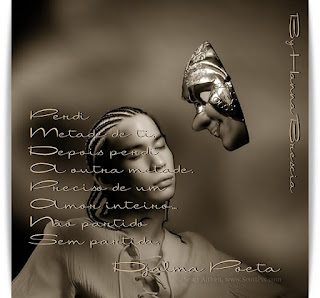 Perdi
Metade de ti,
Depois perdi
A outra metade.
Preciso de um
Amor inteiro...
Não partido
Sem partida.
Djalma Poeta
By Hanna Brescia